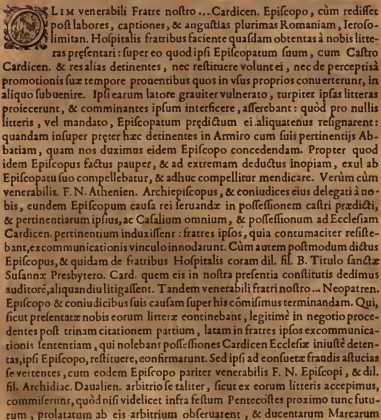 OLIM venerabili Fratre nostro... Cardicen. Episcopo, cùm redisset
post labores, captiones, & augustias plurimas Romaniam, Ieroso-
limitan. Hospitalis fratribus faciente quasdam obtentas à nobis litte-
ras presentari: super eo quod ipsi Episcopatum suum, cum Castro
Cardicen. & res alias detinentes, nec restituere volunt ei, nec de perceptis à
promotionis suæ tempore prouentibus quos in vsus proprios conuerterunt, in
aliquo subuenire. Ipsi earum latore grauiter vulnerato, turpiter ipsas litteras
proiecerunt, & comminantes ipsum interficere, asserebant: quòd pro nullis
litteris, vel mandato, Episcopatum prędictum ei aliquatenus resignarent:
quandam insuper pręter hæc detinentes in Armiro cum suis pertinentijs Ab-
batiam, quam nos duximus eidem Episcopo concedendam. Propter quod
idem Episcopus factus pauper, & ad extremam deductus inopiam, exul ab
Episcopatu suo compellebatur, & adhuc compellitur mendicare. Verùm cùm
venerabilis. F. N. Athenien. Archiepiscopus, & coniudices eius delegati à no-
bis, eundem Episcopum causa rei seruandæ in possessionem castri prædicti,
& pertinentiarum ipsius, ac Casalium omnium, & possessionum ad Ecclesiam
Cardicen. pertinentium induxissent: fratres ipsos, quia contumaciter resiste-
bant, excommunicationis vinculo innodarunt. Cùm autem postmodum dictus
Episcopus, & quidam de fratribus Hospitalis coram dil. fil. B. Titulo sanctæ
Susannæ Presbytero. Card. quem eis in nostra presentia constitutis dedimus
auditorē, aliquandiu litigassent. Tandem venerabili fratri nostro... Neopatren.
Episcopo & coniudicibus suis causam super his cōmisimus terminandam. Qui,
sicut presentatæ nobis eorum litteræ continebant, legitimè in negotio proce-
dentes post trinam citationem partium, latam in fratres ipsos excommunica-
tionis sententiam, qui nolebant possessiones Cardicen Ecclesiæ iniustè deten-
tas, ipsi Episcopo, restituere, confirmarunt. Sed ipsi ad consuetæ fraudis astucias
se vertentes, cum eodem Episcopo pariter venerabilis F. N. Episcopi, & dil.
fil. Archidiac. Daualien. arbitrio se taliter, sicut ex eorum litteris accepimus,
commiserunt, quòd nisi videlicet infra festum Pentecostes proximo tunc futu-
rum, prolatatum ab eis arbitrium obseruarent, & ducentarum Marcarum